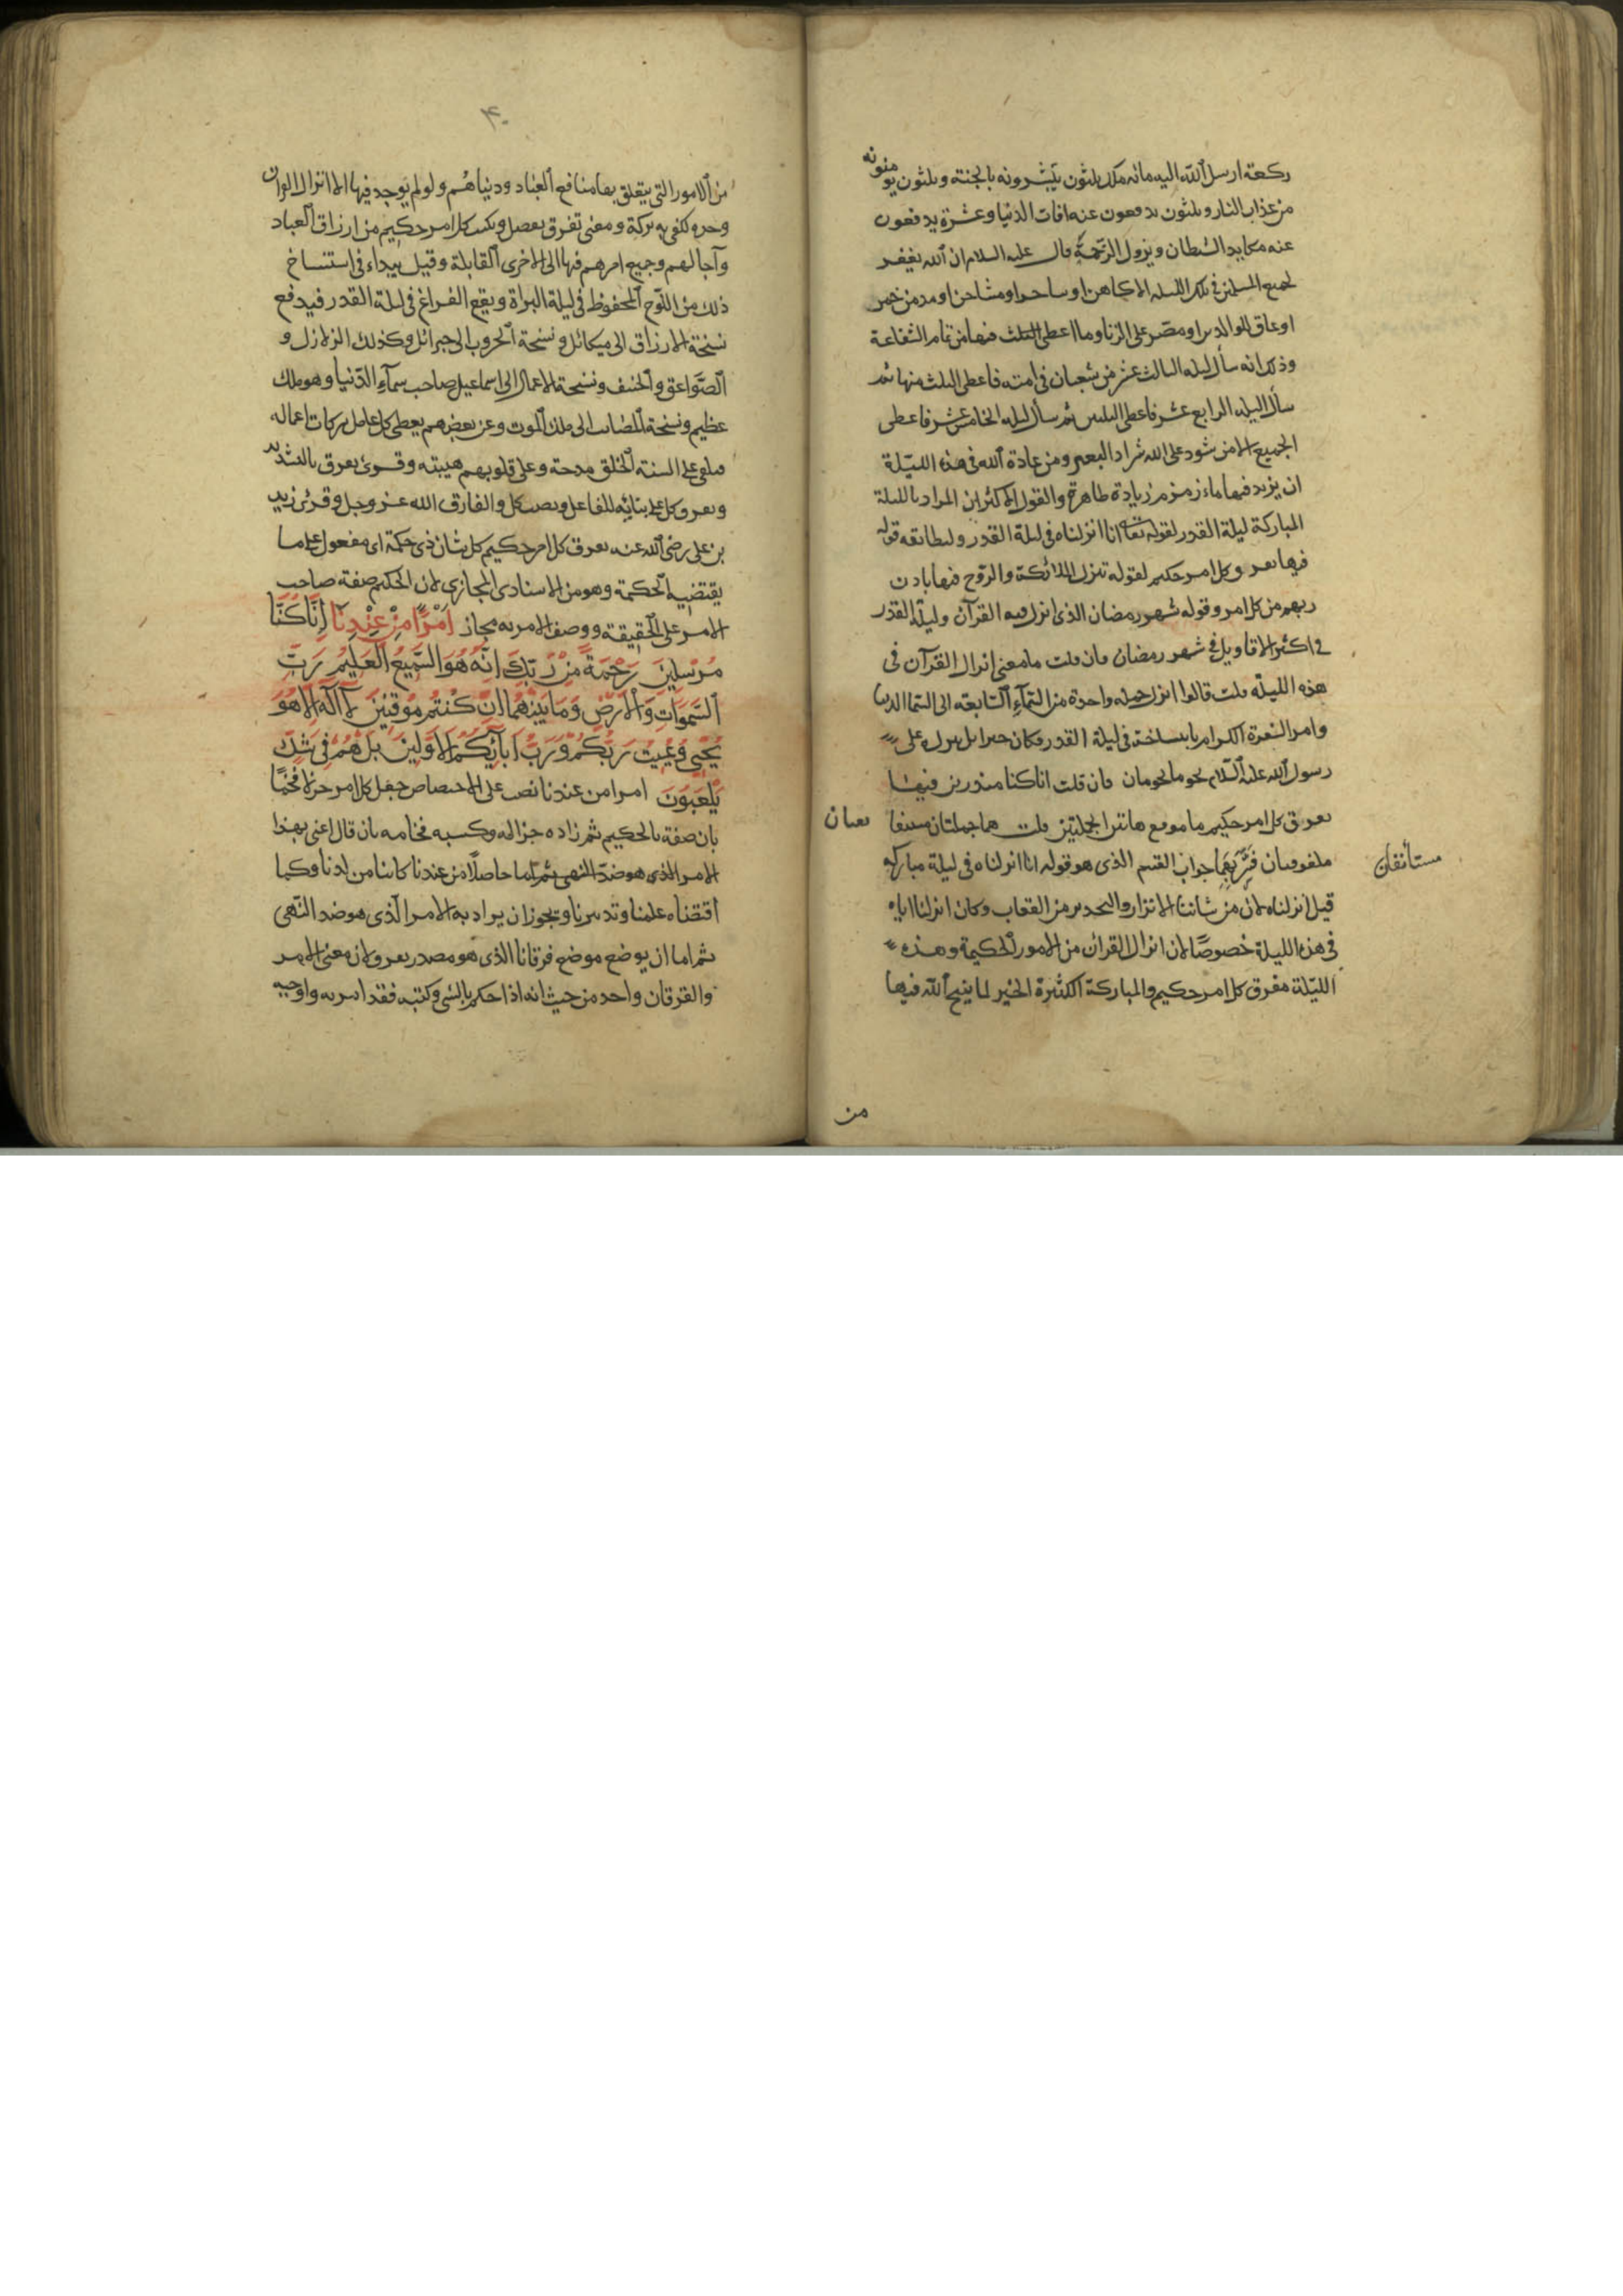 ركعة ارسل الله اليه مائه ملك ثلثون يبشرونه بالجنة وثلثون يومنونه
من عذاب النار وثلثون يدفعون عنه افات الدنيا وعشرة يدفعون
عنه مكايد الشطان ونزول الرحمة قال عليه السلام ان الله يغفر
لجميع المسلمين في تلك الليله الا كاهن او ساحر او مشاحن او مدمن خمر
او عاق للوالدين او مصر على الزنا وما اعطى الثلث فيها من تمام الشفاعة
وذلك انه سأل ليله الثالث عشر من شعبان في امته فاعطى الثلث منها ثم
سأل ليله الرابع عشر فاعطى الثلثين ثم سأل ليله الخامس عشر فاعطى
الجميع الا من شرد على الله شراد البعير ومن عادة الله في هذه الليلة
ان يزيد فيها ماء زمزم زيادة ظاهرة والقول الاكثر ان المراد بالليلة
المباركة ليلة القدر لقوله تعا انا انزلناه في ليلة القدر ولمطابقة قوله
فيها يفرق كل امر حكيم لقوله تنزل الملائكة والروح فيها باذن
ربهم من كل امر وقوله شهر رمضان الذى انزل فيه القرآن وليلة القدر
في اكثر الاقاويل في شهر رمضان فان قلت ما معنى انزال القرآن فى
هذه الليلة قلت قالوا انزل جمله واحدة من السماء السابعة الى السما الدنيا
وامر السفرة الكرام بانتساخه فى ليلة القدر وكان جبرائل ينزله على
رسول الله عليه السلام نجوما نجومان فان قلت انا كنا منذرين فيها
يفرق كل امر حكيم ما موقع هاتين الجملتين قلت هما جملتان
مستأنفان
ملفوفتان فسر بهما جواب القسم الذى هو قوله انا انزلناه فى ليلة مباركه
قيل انزلناه لان من شاننا الانزار والتحدير من العقاب وكان انزلنا اياه
فى هذه الليلة خصوصًا لان انزال القران من الامور الحكيمة وهذه
الليلة مفرق كل امر حكيم والمباركة الكثيرة الخير لما ينيح الله فيها
من
٤٠
من الامور التى يتعلق بها منافع العباد ودنياهم ولو لم يوجد فيها الا انزال القران
وحده لكفى به بركة ومعنى تفرق يفصل ويكتب كل امر حكيم من ارزاق العباد
وآجالهم وجميع امرهم فيها الى الاخرى القابلة وقيل يبداء فى استنساخ
ذلك من اللوح المحفوظ فى ليلة البراة ويقع الفراغ فى ليلة القدر فيدفع
نسخة الارزاق الى ميكائل ونسخة الحروب الى جبرائل وكذلك الزلازل و
الصواعق والخسف ونسخة الاعمال الى اسماعيل صاحب سمآء الدنيا وهو ملك
عظيم ونسخة المصائب الى ملك الموت وعن بعضهم يعطى كل عامل بركات اعماله
فيلقى على السنة الخلق مدحة وعلى قلوبهم هيبته وقرئ يفرق بالتشديد
ويفرق كل على بنائه للفاعل ونصب كل والفارق الله عز وجل وقرئ زيد
بن على رضى الله عنه نفرق كل امر حكيم كل شان ذى حكمة اى مفعول على ما
يقتضيه الحكمة وهو من الاسنادى المجازى لان الحكيم صفة صاحب
الامر على الحقيقة ووصف الامر به مجاز اَمْرًا مِنْ عِنْدِنَا اِنَّا كُنَّا
مُرْسِلِينَ رَحْمَةً مِنْ رَبِّكَ اِنَّهُ هُوَ السَّمِيعُ الْعَلِيمُ رَبِّ
السَّمٰوَاتِ وَالْاَرْضِ وَمَا بَيْنَهُمَا اِنْ كُنْتُمْ مُوقِنِينَ لَآ اِلٰهَ اِلَّا هُوَ
يُحْيِى وَيُمِيتُ رَبُّكُمْ وَرَبُّ اٰبَآئِكُمُ الْاَوَّلِينَ بَلْ هُمْ فِى شَكٍّ
يَلْعَبُونَ امرا من عندنا نصب على الاختصاص جعل كل امر جزلا فخمًا
بان صفة بالحكيم ثم زاده جزالة وكسبه فخامه بان قال اعنى بهذا
الامر الذى هو ضد النهى ثم اما حاصلًا من عندنا كائنا من لدنا وكما
اقتضاه علمنا وتدبيرنا ويجوز ان يراد به الامر الذى هو ضد النهى
ثم اما ان يوضع موضع فرقانا الذى هو مصدر يفرق لان معنى الامر
والفرقان واحد من حيث انه اذا حكم بالشى وكتبه فقد امر به واوجبه